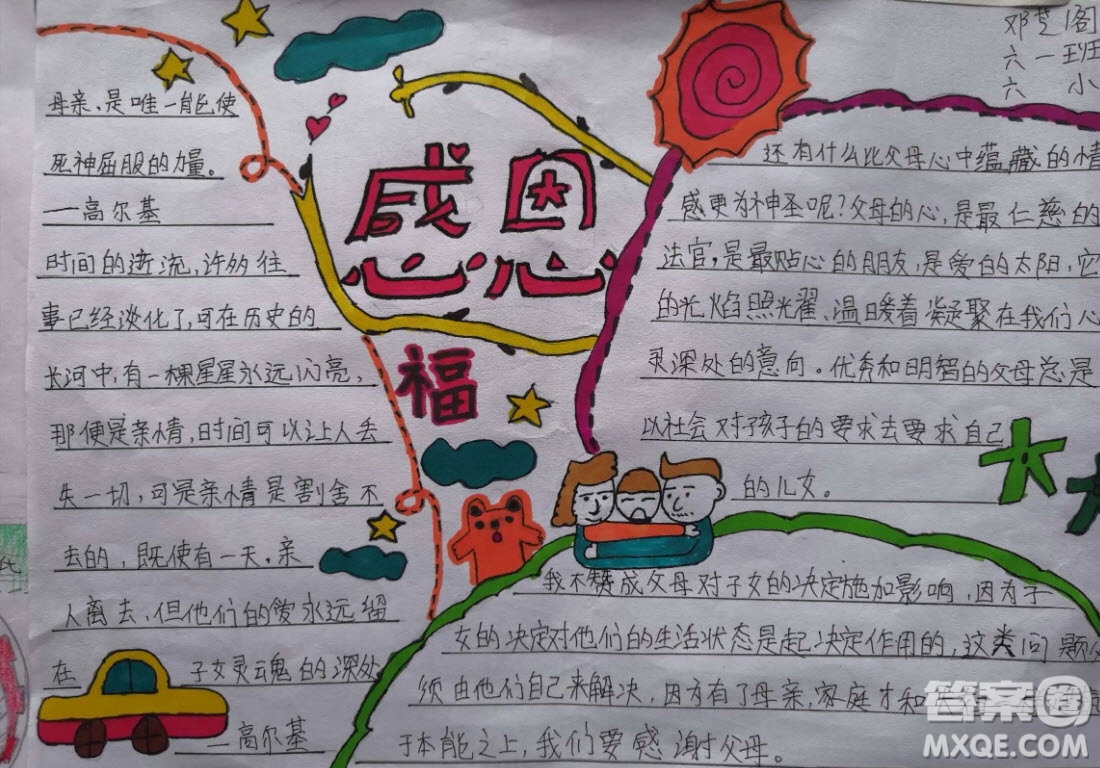 邓芝阁
六一班
六 小
母亲,是唯一能使
死神屈服的力量。
—高尔基
时间的逝流,许多往
事已经淡化了,可在历史的
长河中,有一颗星星永远闪亮,
那便是亲情,时间可以让人丢
失一切,可是亲情是割舍不
去的,既使有一天,亲
人离去,但他们的爱永远留
在 子女灵魂的深处
—高尔基
感恩
心心
福
还有什么比父母心中蕴藏的情
感更为神圣呢?父母的心,是最仁慈的
法官,是最贴心的朋友,是爱的太阳,它
的光焰照光耀、温暖着凝聚在我们心
灵深处的意向。优秀和明智的父母总是
以社会对孩子的要求去要求自己
的儿女。
大
我不赞成父母对子女的决定施加影响,因为子
女的决定对他们的生活状态是起决定作用的,这类问题必
须由他们自己来解决,因为有了母亲,家庭才和
于本能之上,我们要感谢父母。
答案圈
MXQE.COM